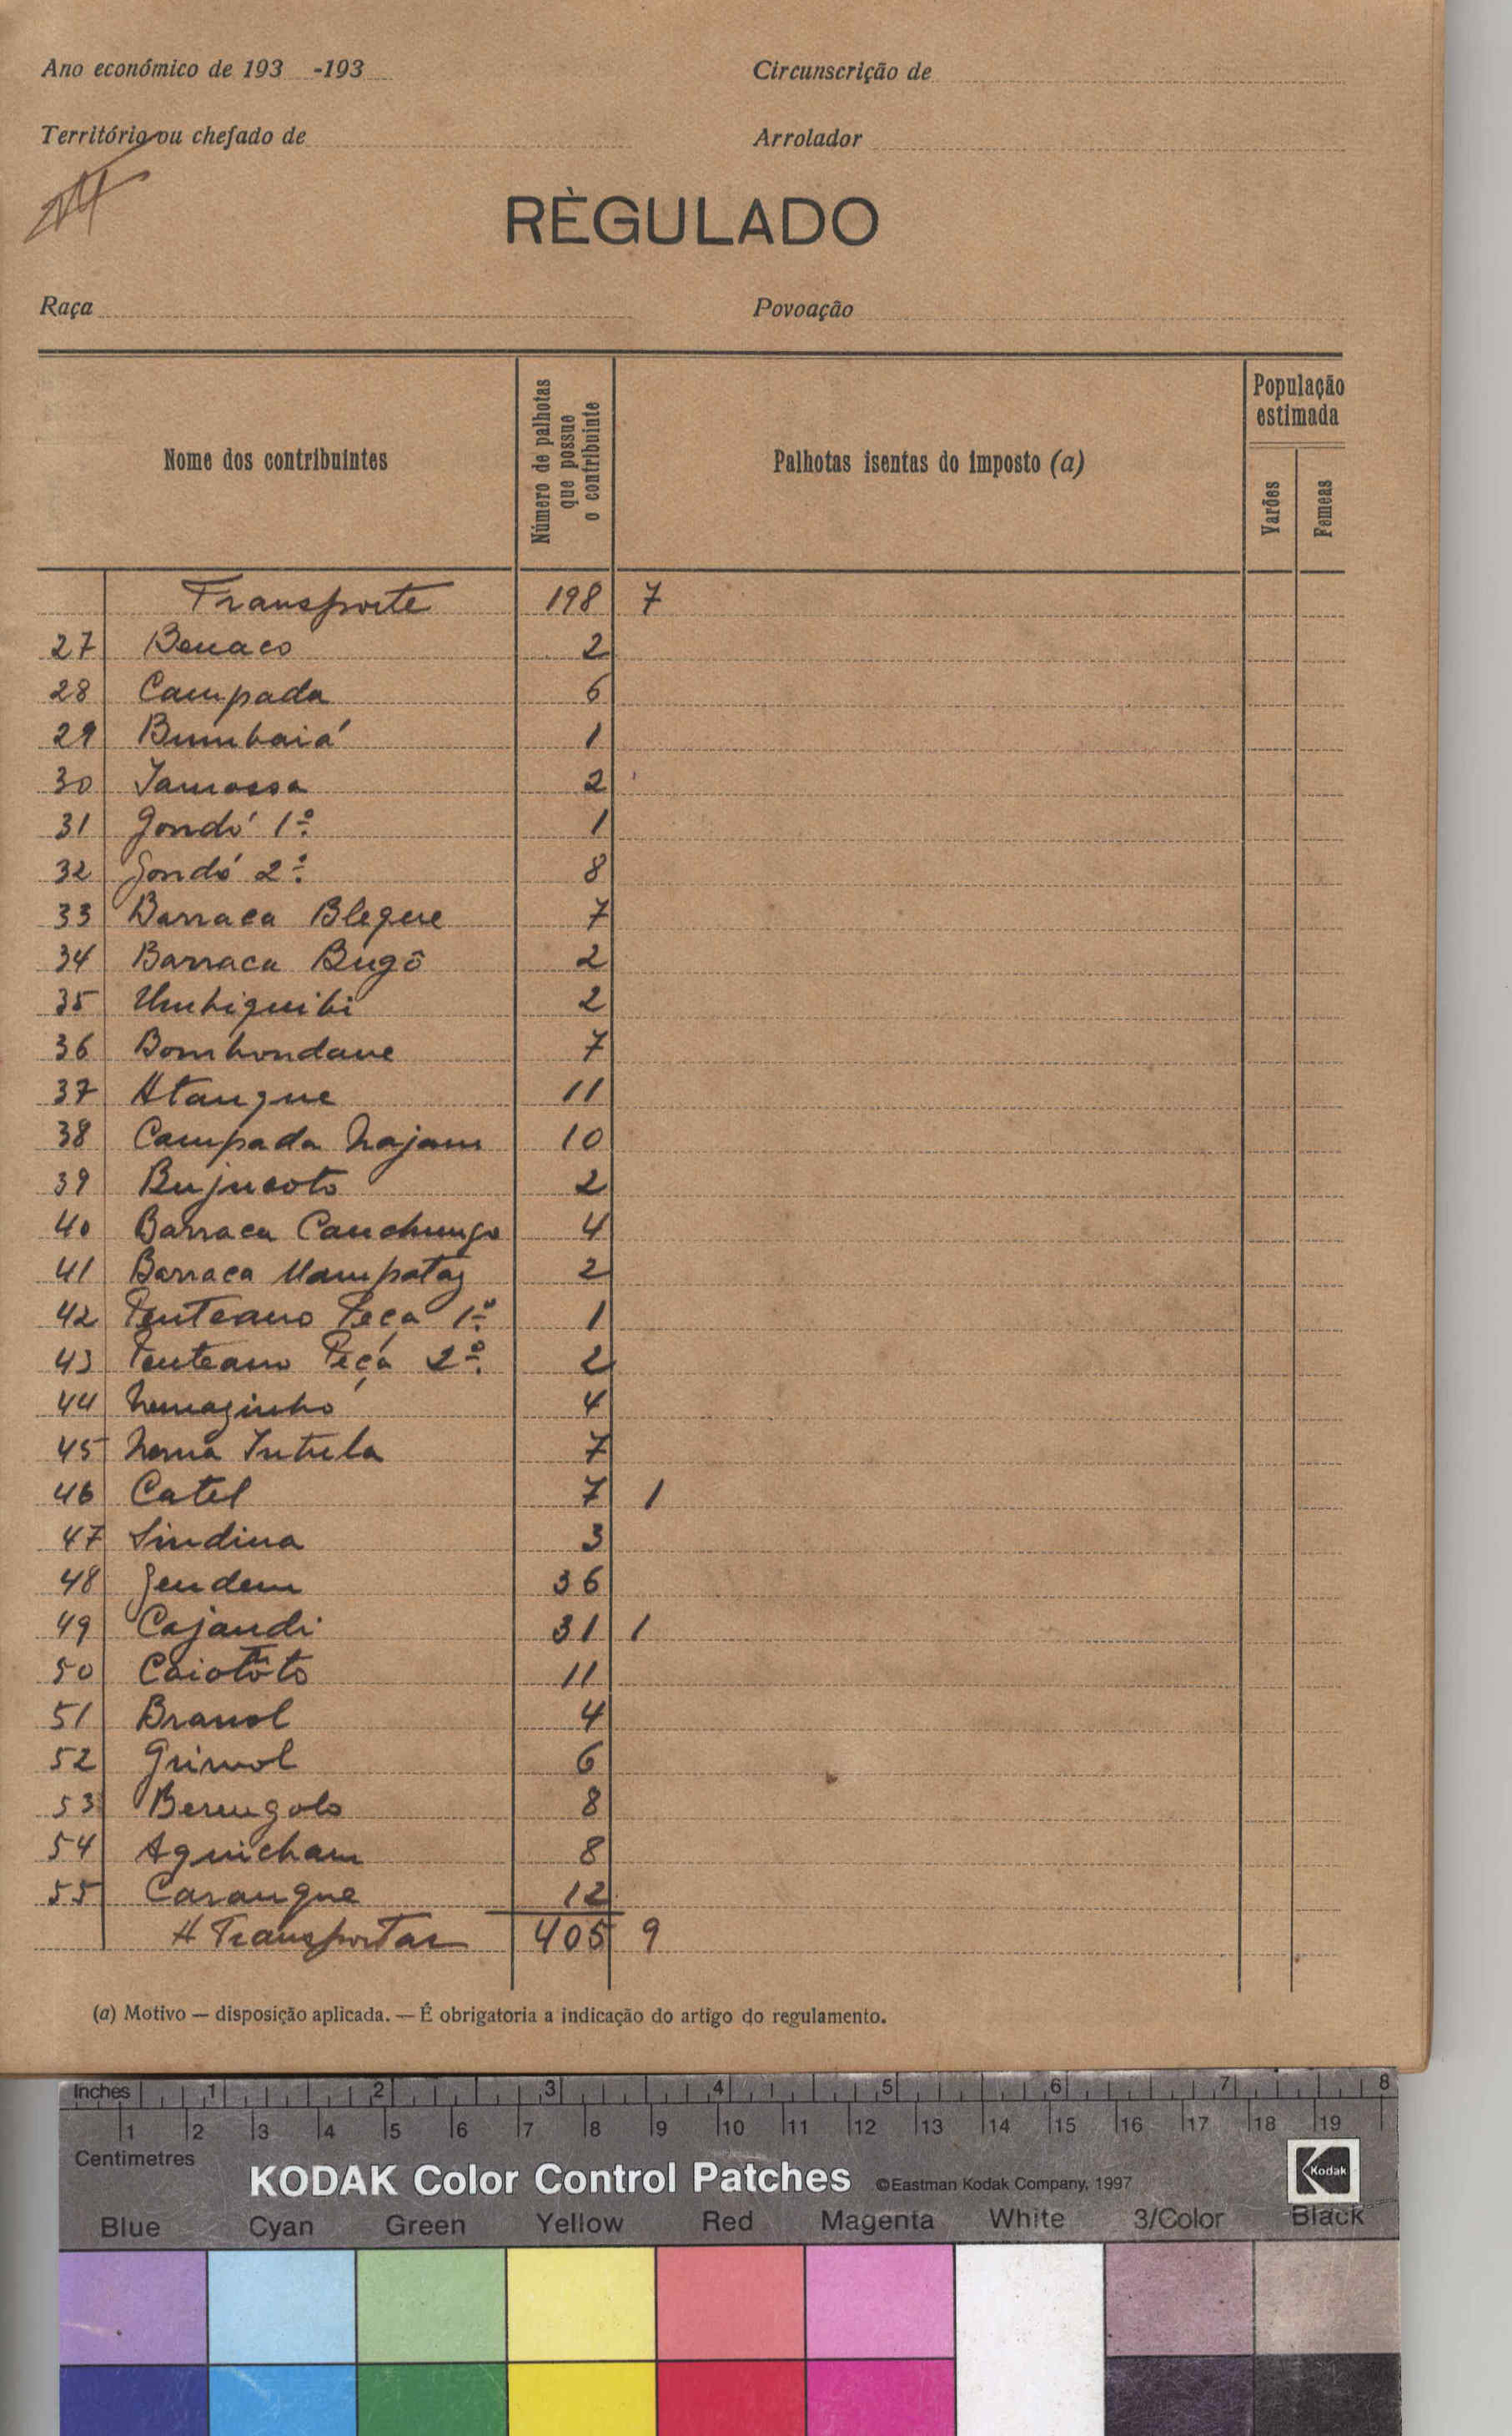 Ano económico de 193 -193
Circunscrição de
Território ou chefado de
Arrolador
RÈGULADO
Raça
Povoação
Nome dos contribuintes
Número de palhotas que possue o contribuinte
Palhotas isentas do imposto (a)
População estimada
Varões
Femeas
Transporte 198 7
27 Benaco 2
28 Campada 6
29 Bumbaiá 1
30 Jamossa 2
31 Jondó 1º 1
32 Jondó 2º 8
33 Barraca Bleque 7
34 Barraca Bugô 2
35 Umbiquibi 2
36 Bombondane 7
37 Atangue 11
38 Campada Najam 10
39 Bujucoto 2
40 Barraca Canchungo 4
41 Barraca Mampataz 2
42 Peça 1º 1
43 Peça 2º 2
44 4
45 Intula 7
46 Catel 7 1
47 Sindina 3
48 Jendem 36
49 Cajandi 31 1
50 11
51 Bramol 4
52 6
53 8
54 Aguicham 8
55 Carangue 12
A Transportar 405 9
(a) Motivo — disposição aplicada. — É obrigatoria a indicação do artigo do regulamento.
Inches 1 2 3 4 5 6 7 8
1 2 3 4 5 6 7 8 9 10 11 12 13 14 15 16 17 18 19
Centimetres
KODAK Color Control Patches ©Eastman Kodak Company, 1997 Kodak
Blue Cyan Green Yellow Red Magenta White 3/Color Black